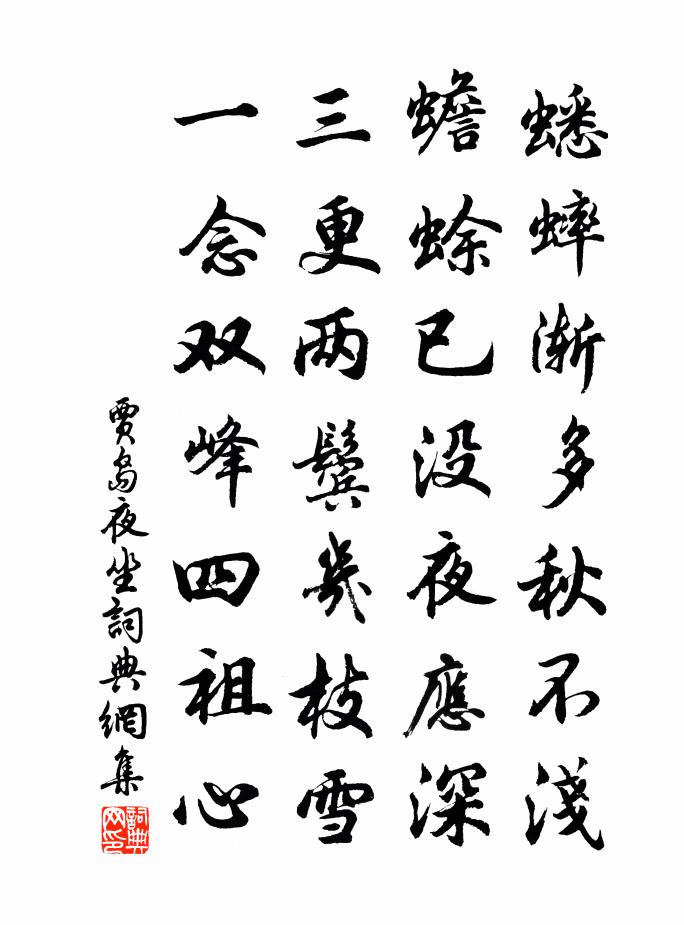 蟋蟀渐多秋不淺
蟾蜍已没夜應深
三更两鬓幾枝雪
一念双峰四祖心
賈島夜坐詞典網集
詞典网印